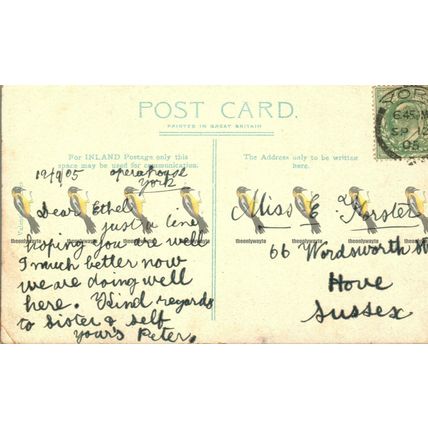 POST CARD.
PRINTED IN GREAT BRITAIN
For INLAND Postage only this
space may be used for communication.
The Address only to be written
here.
YOR
6.45 PM
SP 1
05
12/9/05 operahouse
York
Dear Ethel
just a line
hoping you are well
I much better now
we are doing well
here. Kind regards
to Sister & self
your's Peter.
Miss E Forster
66 Wordsworth St
Hove
Sussex
theonlywayto
theonlywayto
theonlywayto
theonlywayto
theonlywayto
theonlywayto
theonlywayto